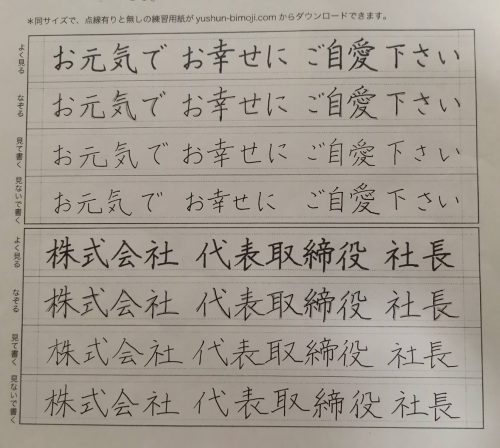 *同サイズで、点線有りと無しの練習用紙が yushun-bimoji.com からダウンロードできます。
よく見る お元気で お幸せに ご自愛下さい
なぞる お元気で お幸せに ご自愛下さい
見て書く お元気で お幸せに ご自愛下さい
見ないで書く お元気で お幸せに ご自愛下さい
よく見る 株式会社 代表取締役 社長
なぞる 株式会社 代表取締役 社長
見て書く 株式会社 代表取締役 社長
見ないで書く 株式会社 代表取締役 社長